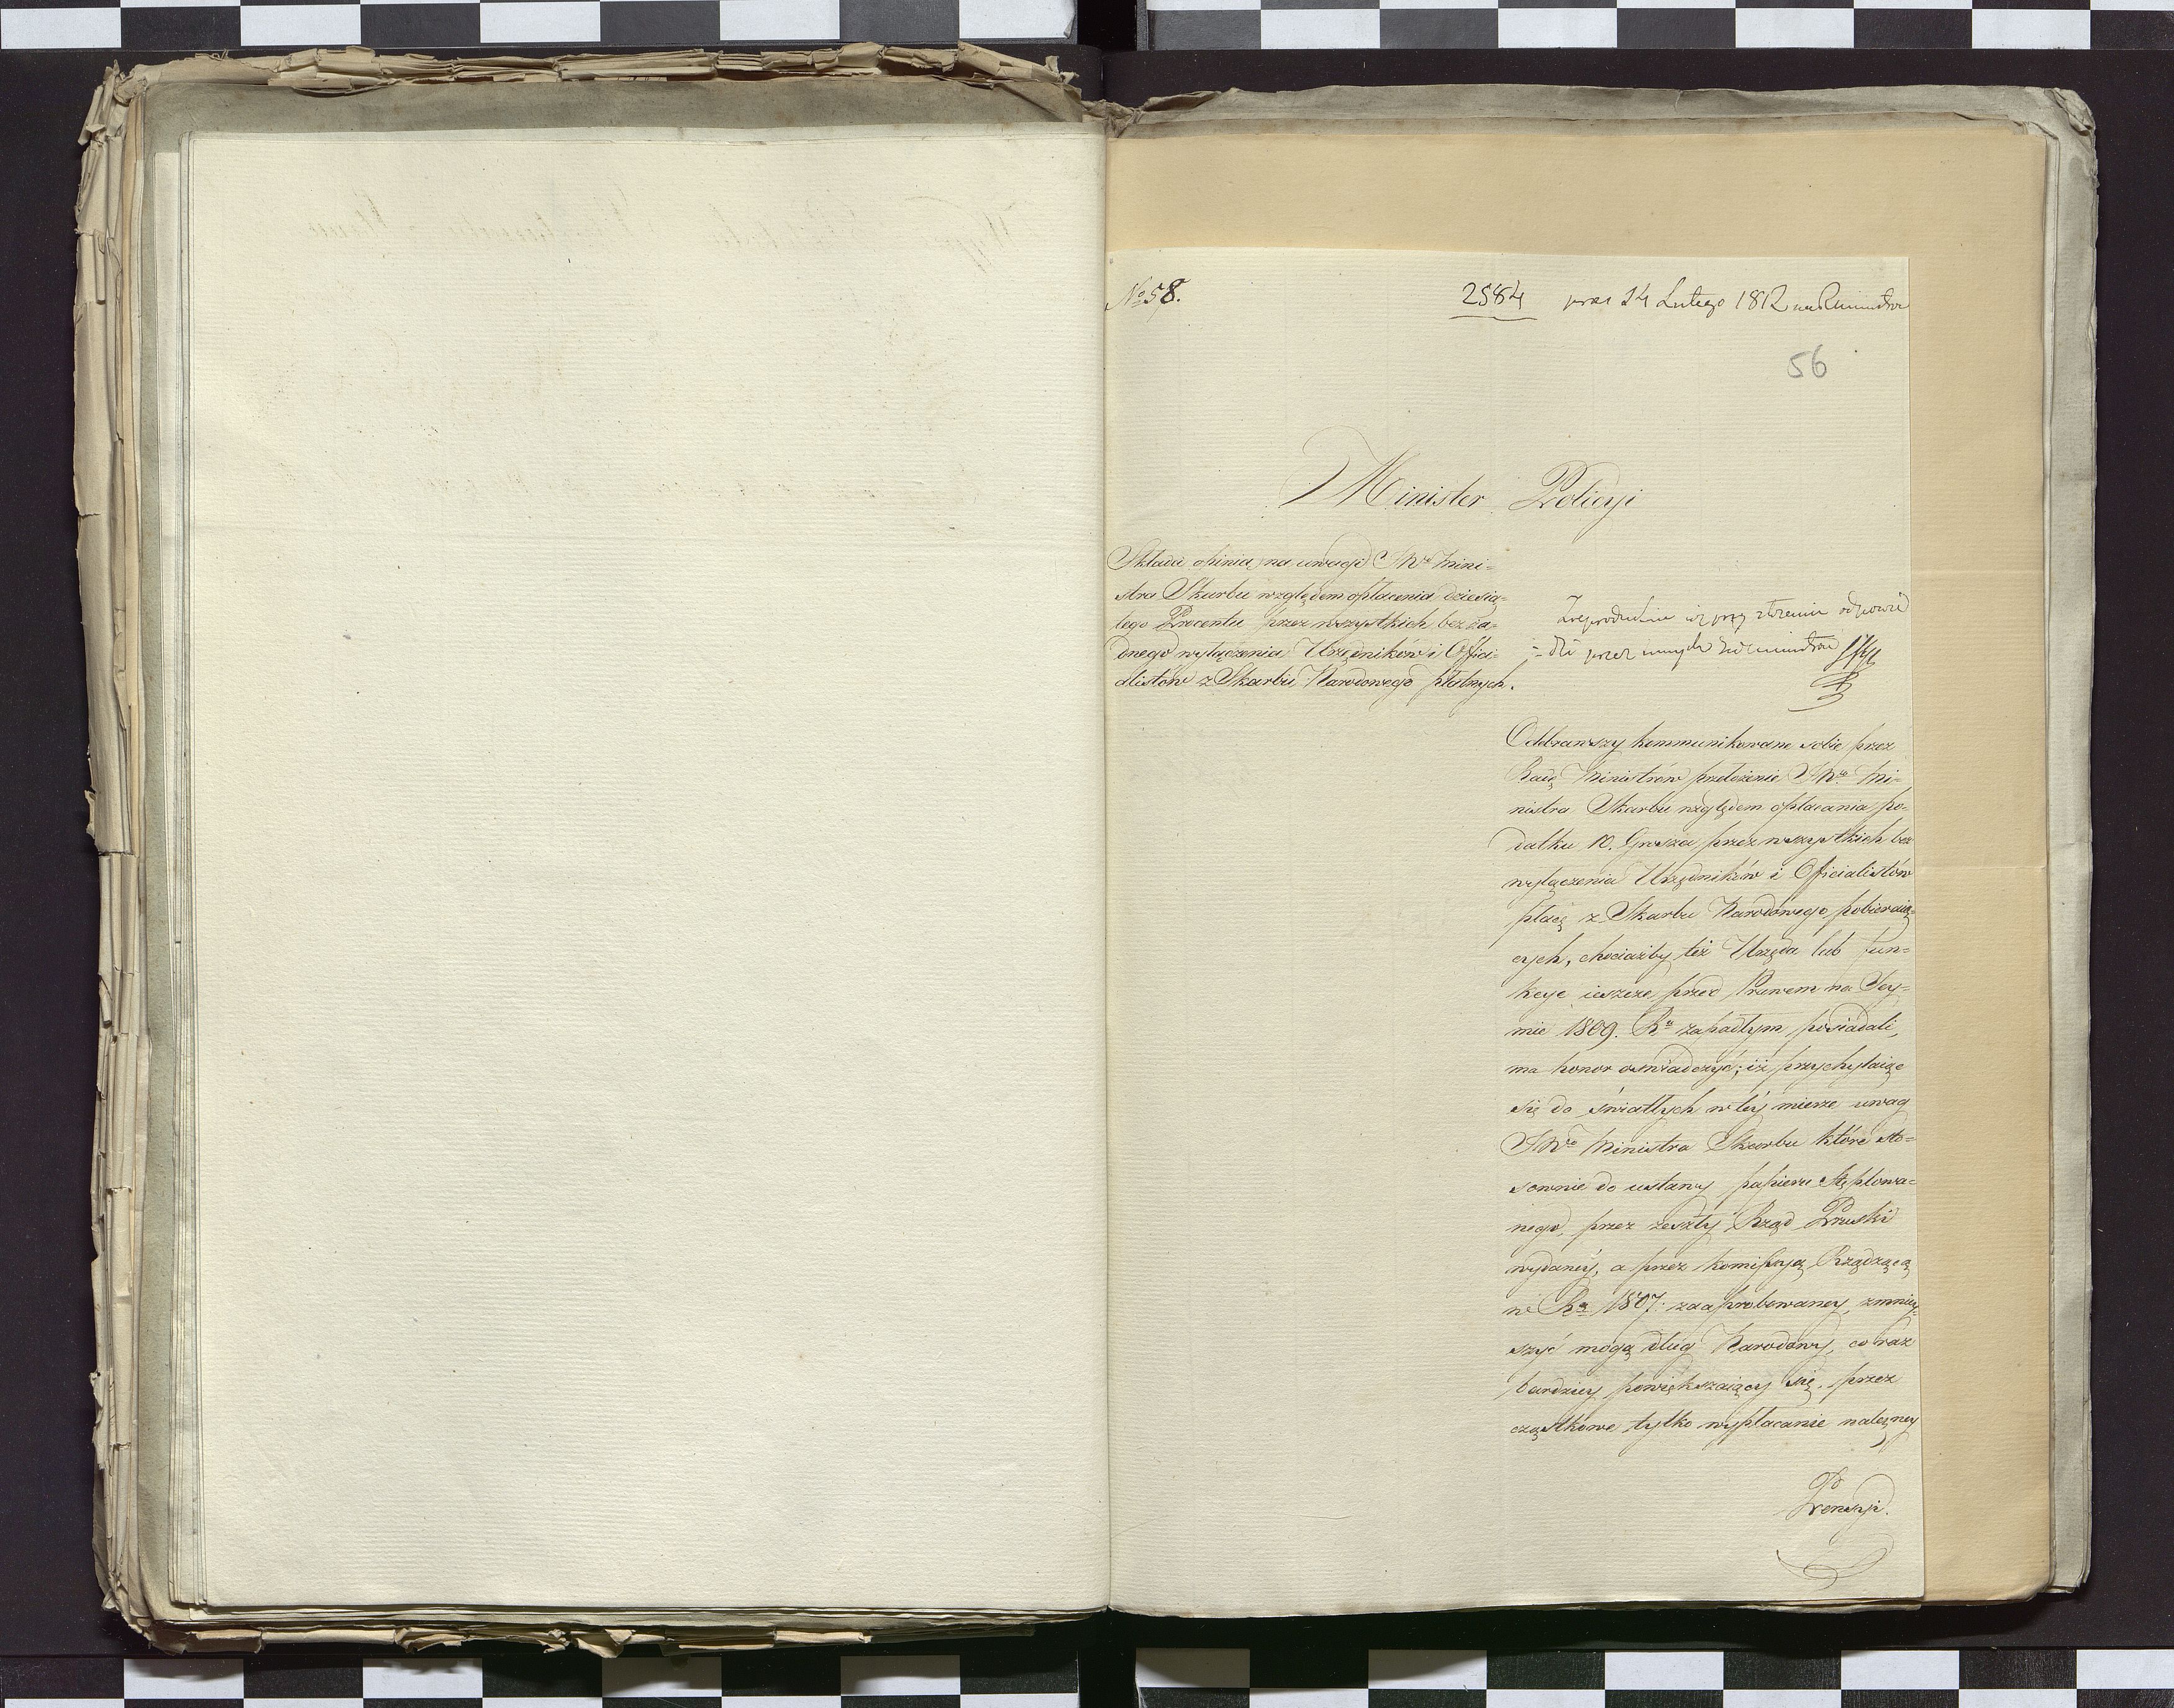 No 58.
2584 14 Lutego 1812
56
Minister Policyi
Składa opinią na uwagi JWo Mini=
stra Skarbu względem opłacenia dziesią=
tego Procentu przez wszystkich bez ża=
dnego wyłączenia Urzędników i Offici=
alistów z Skarbu Narodowego płatnych.
Odebrawszy kommunikowane sobie przez
Radę Ministrów przełożenie JWo Mi=
nistra Skarbu względem opłacania po=
datku 10. Grosza przez wszystkich bez
wyłączenia Urzędników i Officialistów
płacę z Skarbu Narodowego pobieraią=
cych, chociażby też Urzęda lub fun=
kcye ieszcze przed Prawem na Sey=
mie 1809. Ru zapadłym posiadali,
ma honor oswiadczyć; iż przychylaiąc
się do światłych w tey mierze uwag
JWo Ministra Skarbu które sto=
sownie do ustawy papieru stęplowa=
nego, przez zeszły Rząd Pruski
wydaney, a przez kommissyą Rządzącą
w Ru 1807. zaaprobowaney, zmniey=
szyć mogą dług Narodowy, co raz
bardziey powiększaiący się przez
cząstkowe tylko wypłacanie należney
Do
Prenssyi.